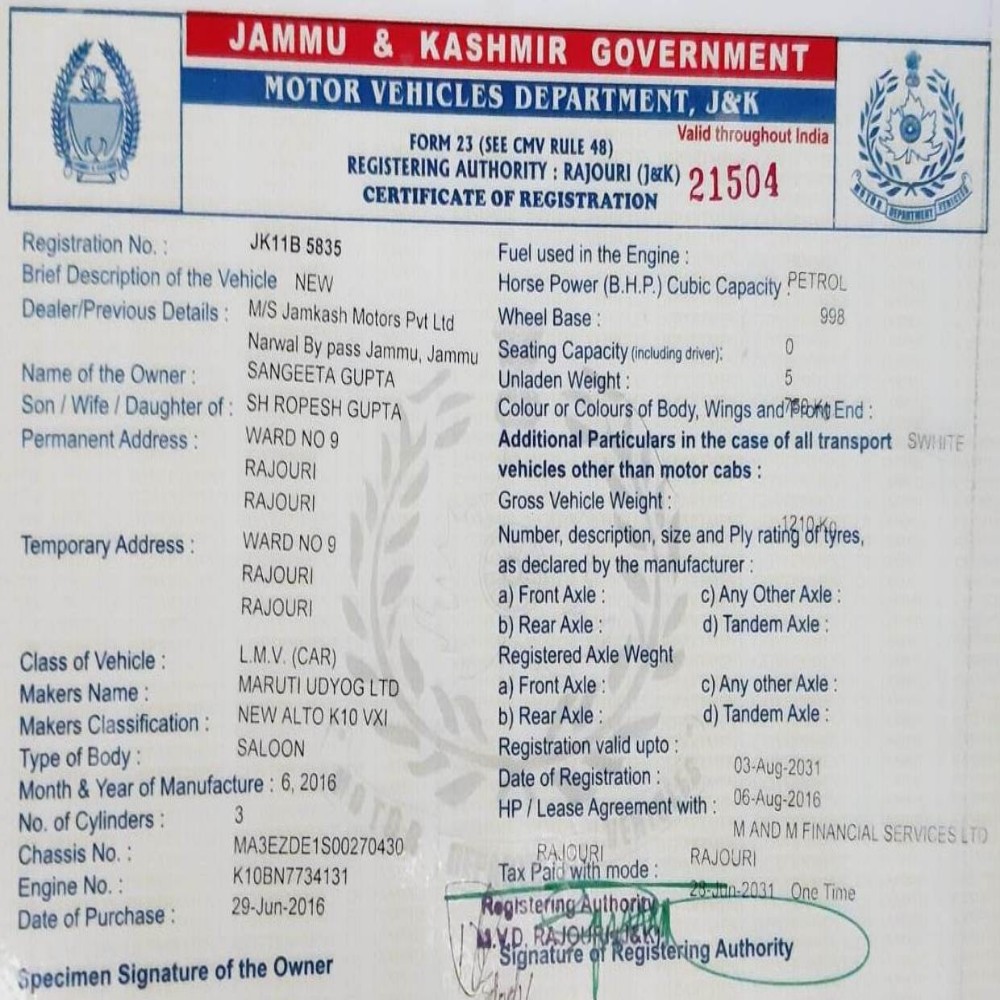 JAMMU & KASHMIR GOVERNMENT
MOTOR VEHICLES DEPARTMENT, J&K
Valid throughout India
FORM 23 (SEE CMV RULE 48)
REGISTERING AUTHORITY : RAJOURI (J&K) 21504
CERTIFICATE OF REGISTRATION
MOTOR DEPARTMENT VEHICLES
Registration No. : JK11B 5835
Brief Description of the Vehicle NEW
Dealer/Previous Details : M/S Jamkash Motors Pvt Ltd
Narwal By pass Jammu, Jammu
Name of the Owner : SANGEETA GUPTA
Son / Wife / Daughter of : SH ROPESH GUPTA
Permanent Address : WARD NO 9
RAJOURI
RAJOURI
Temporary Address : WARD NO 9
RAJOURI
RAJOURI
Class of Vehicle : L.M.V. (CAR)
Makers Name : MARUTI UDYOG LTD
Makers Classification : NEW ALTO K10 VXI
Type of Body : SALOON
Month & Year of Manufacture : 6, 2016
No. of Cylinders : 3
Chassis No. : MA3EZDE1S00270430
Engine No. : K10BN7734131
Date of Purchase : 29-Jun-2016
Specimen Signature of the Owner
Fuel used in the Engine :
Horse Power (B.H.P.) Cubic Capacity : PETROL
Wheel Base : 998
Seating Capacity (including driver): 0
Unladen Weight : 5
Colour or Colours of Body, Wings and Front End :
Additional Particulars in the case of all transport SWHITE
vehicles other than motor cabs :
Gross Vehicle Weight :
1210 Kg
Number, description, size and Ply rating of tyres,
as declared by the manufacturer :
a) Front Axle : c) Any Other Axle :
b) Rear Axle : d) Tandem Axle :
Registered Axle Weght
a) Front Axle : c) Any other Axle :
b) Rear Axle : d) Tandem Axle :
Registration valid upto : 03-Aug-2031
Date of Registration : 06-Aug-2016
HP / Lease Agreement with :
M AND M FINANCIAL SERVICES LTD
RAJOURI RAJOURI
Tax Paid with mode : 28-Jun-2031 One Time
Registering Authority
M.V.D. RAJOURI (J&K)
Signature of Registering Authority